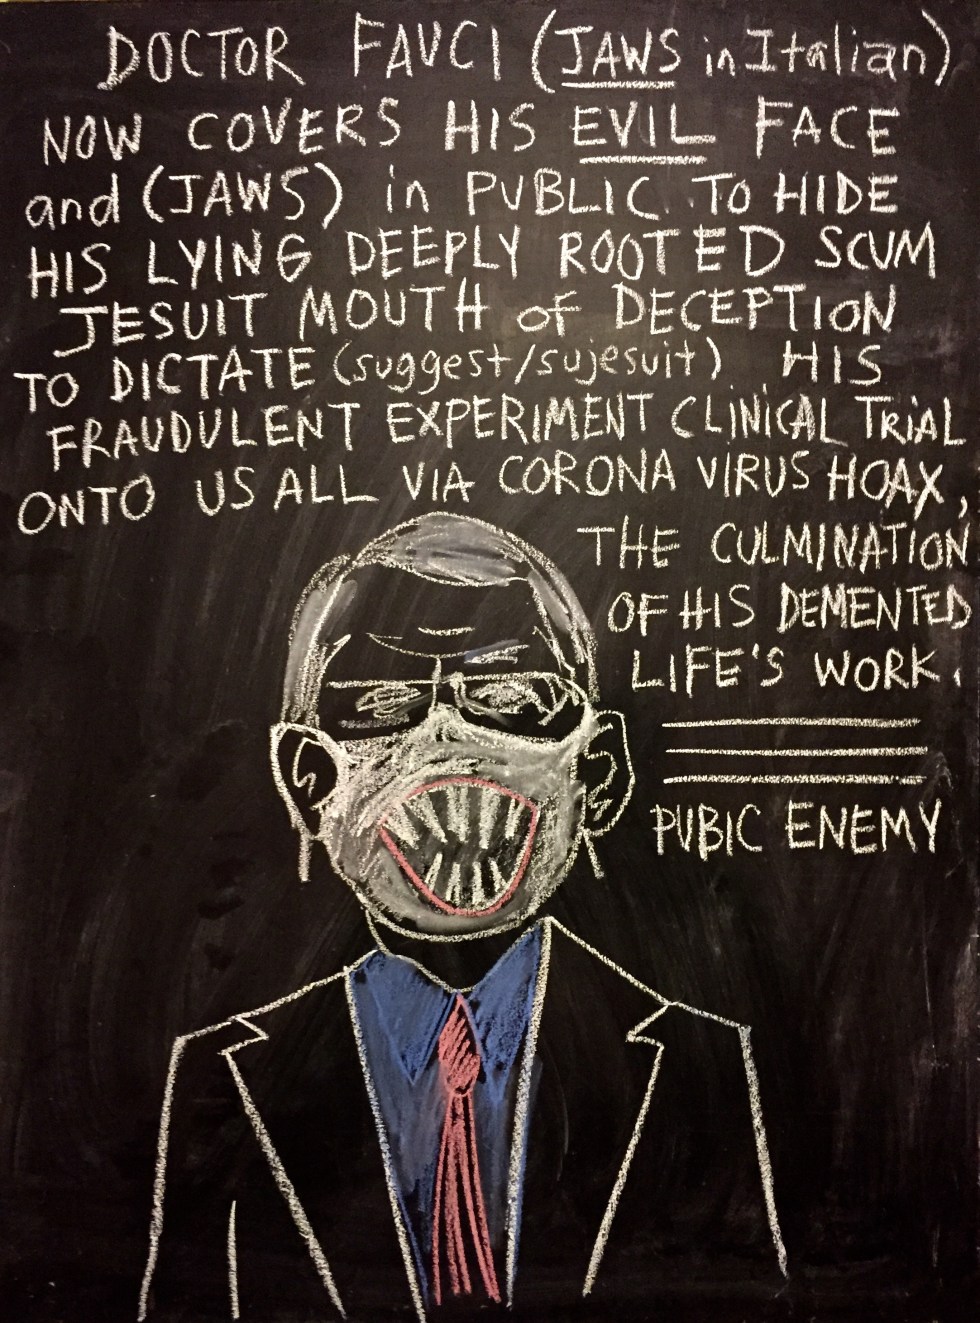 DOCTOR FAUCI (JAWS in Italian)
NOW COVERS HIS EVIL FACE
and (JAWS) in PUBLIC TO HIDE
HIS LYING DEEPLY ROOTED SCUM
JESUIT MOUTH of DECEPTION
TO DICTATE (suggest/sujesuit) HIS
FRAUDULENT EXPERIMENT CLINICAL TRIAL
ONTO US ALL VIA CORONA VIRUS HOAX,
THE CULMINATION
OF HIS DEMENTED
LIFE'S WORK.
PUBIC ENEMY